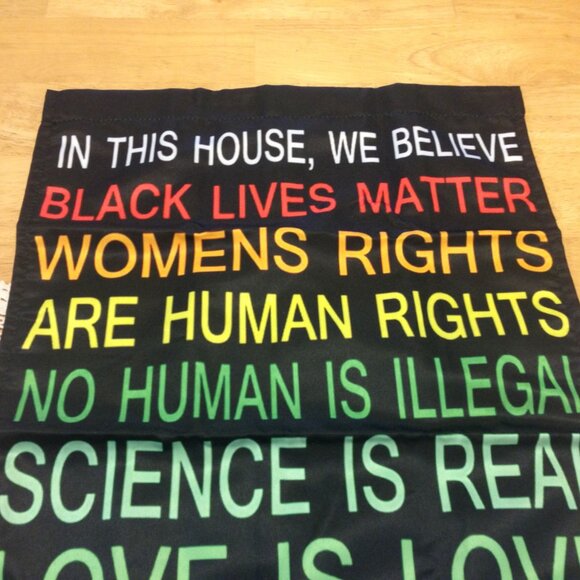 IN THIS HOUSE, WE BELIEVE
BLACK LIVES MATTER
WOMENS RIGHTS
ARE HUMAN RIGHTS
NO HUMAN IS ILLEGAL
SCIENCE IS REAL
LOVE IS LOVE